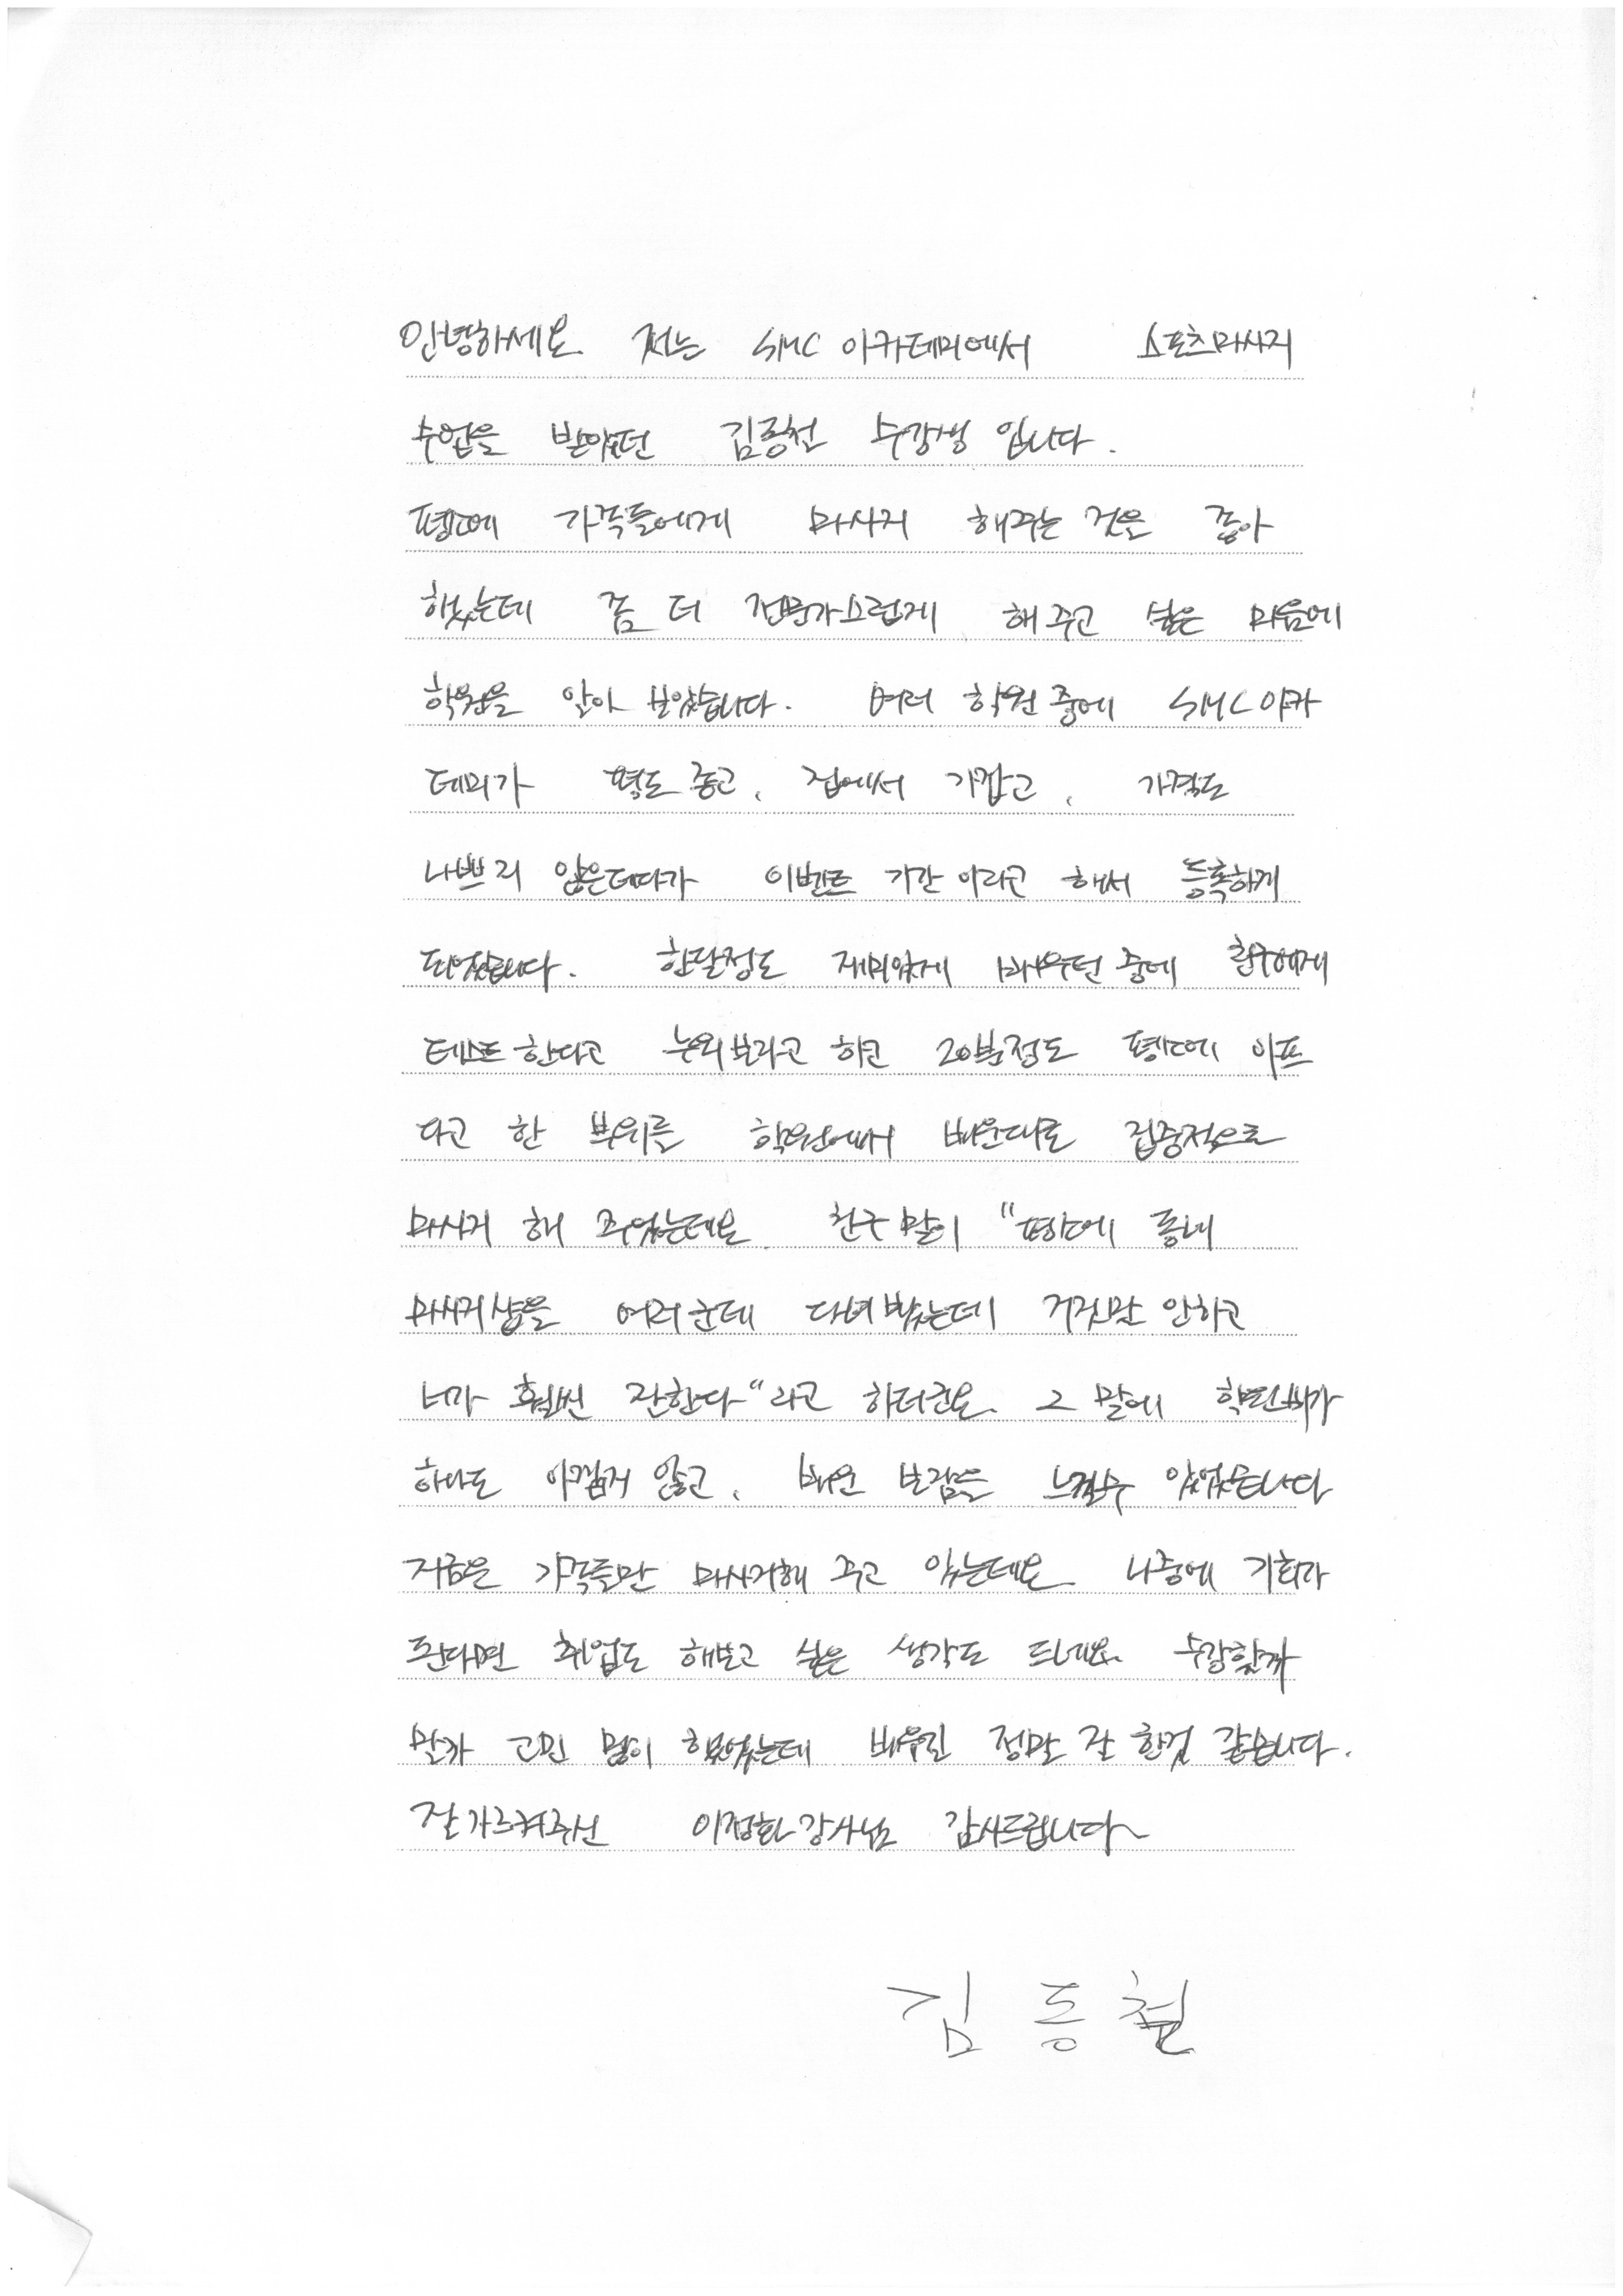 안녕하세요. 저는 SMC 아카데미에서 스포츠마사지
수업을 받았던 김동철 수강생 입니다.
평소에 가족들에게 마사지 해주는 것은 좋아
했었는데 좀 더 전문가스럽게 해 주고 싶은 마음에
학원을 알아 보았습니다. 여러 학원 중에 SMC 아카
데미가 평도 좋고, 집에서 가깝고, 가격도
나쁘지 않은데다가 이벤트 기간 이라고 해서 등록하게
되었습니다. 한달정도 재미있게 배우던 중에 친구에게
테스트 한다고 누워보라고 하고 20분정도 평소에 아프
다고 한 부위를 학원에서 배운대로 집중적으로
마사지 해 주었는데요. 친구 말이 "평소에 동네
마사지샵을 여러 군데 다녀 봤는데 거짓말 안하고
너가 훨씬 잘한다"라고 하더군요. 그 말에 학원비가
하나도 아깝지 않고, 배운 보람을 느낄수 있었습니다
지금은 가족들만 마사지해 주고 있는데요. 나중에 기회가
된다면 취업도 해보고 싶은 생각도 드네요. 수강할까
말까 고민 많이 했었는데 배우길 정말 잘 한것 같습니다.
잘 가르켜주신 이정화 강사님 감사드립니다~
김 동 철